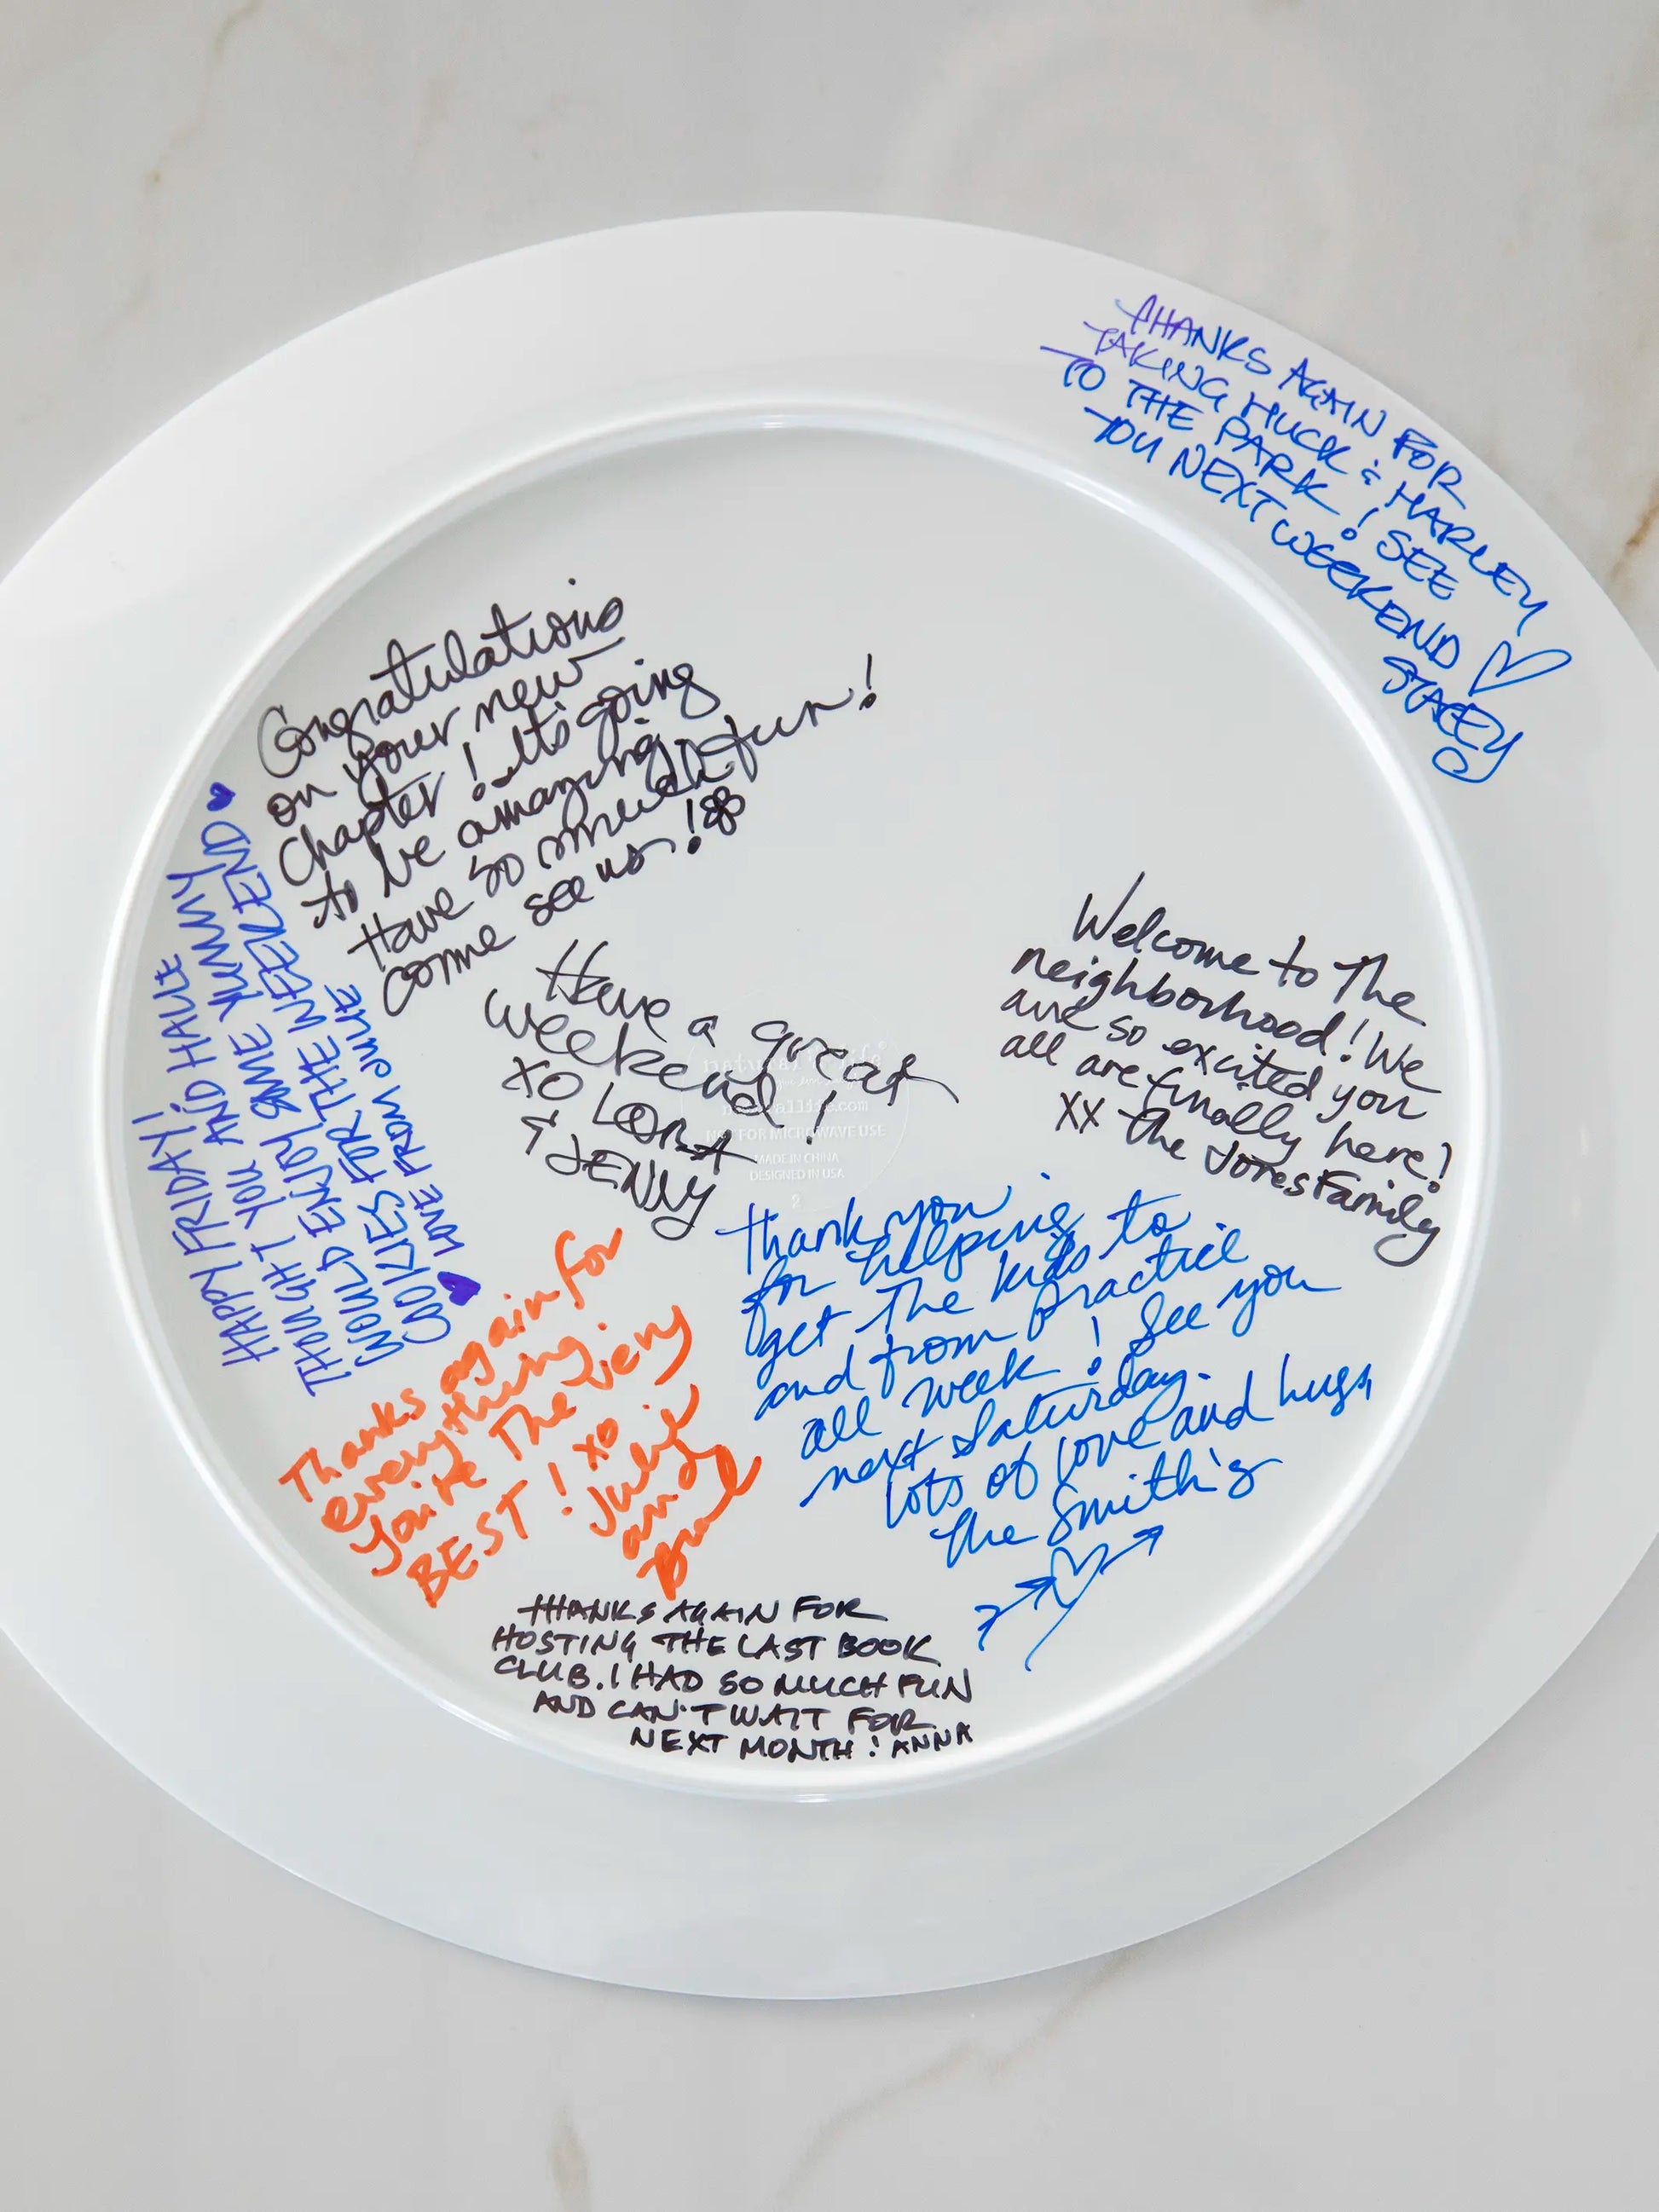 THANKS AGAIN FOR
TAKING HUCK & HARLEY
TO THE PARK! SEE
YOU NEXT WEEKEND ♡
STACEY
Congratulations
on your new
Chapter! It's going
to be amazing
Have so much fun!
come see us!
HAPPY FRIDAY!
THOUGHT YOU AND HAULE
WOULD ENJOY SOME YUMMY
COOKIES FOR THE WEEKEND ♥
♥ LOVE FROM JULIE
Have a great
weekend!
XO LORA
& JENNY
Welcome to The
neighborhood! We
are so excited you
all are finally here!
XX The Jones Family
natural life®
naturallife.com
NOT FOR MICROWAVE USE
MADE IN CHINA
DESIGNED IN USA
Thank you
for helping
get the kids to
and from practice
all week! See you
next Saturday.
lots of love and hugs,
The Smith's
Thanks again for
everything.
You're The very
BEST! xo
Julie
and
THANKS AGAIN FOR
HOSTING THE LAST BOOK
CLUB. I HAD SO MUCH FUN
AND CAN'T WAIT FOR
NEXT MONTH! ANNA